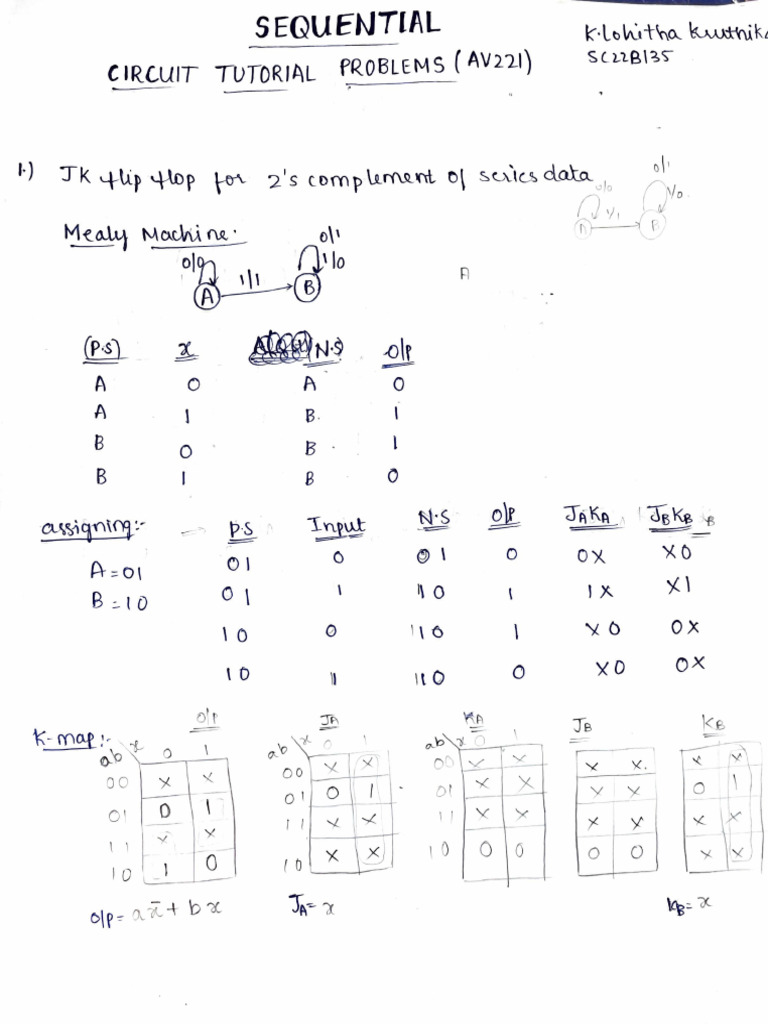 SEQUENTIAL
K.Lohitha
CIRCUIT TUTORIAL PROBLEMS (AV221)
SC22B135
1.) JK flip flop for 2's complement of series data
0/0 1/1 0/1 1/0
A B
Mealy Machine:
0/0 1/1 0/1 1/0
A B
A
(P.S) x (N.S) O/P
A 0 A 0
A 1 B 1
B 0 B 1
B 1 B 0
assigning:- P.S Input N.S O/P JAKA JBKB B
A=01 01 0 01 0 0X X0
B=10 01 1 10 1 1X X1
10 0 10 1 X0 0X
10 1 10 0 X0 0X
K-map:- O/P JA KA JB KB
ab x 0 1 ab x 0 1 ab x 0 1
00 x x 00 x x 00 x x x x x x
01 0 1 01 0 1 01 x x x x 0 1
11 x x 11 x x 11 x x x x x x
10 1 0 10 x x 10 0 0 0 0 x x
O/P = ax̄ + bx JA = x KB = x